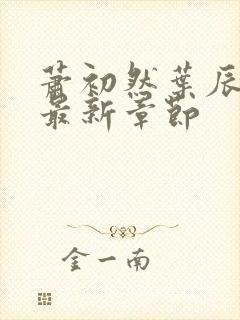 萧初然叶辰
最新章节
金一南